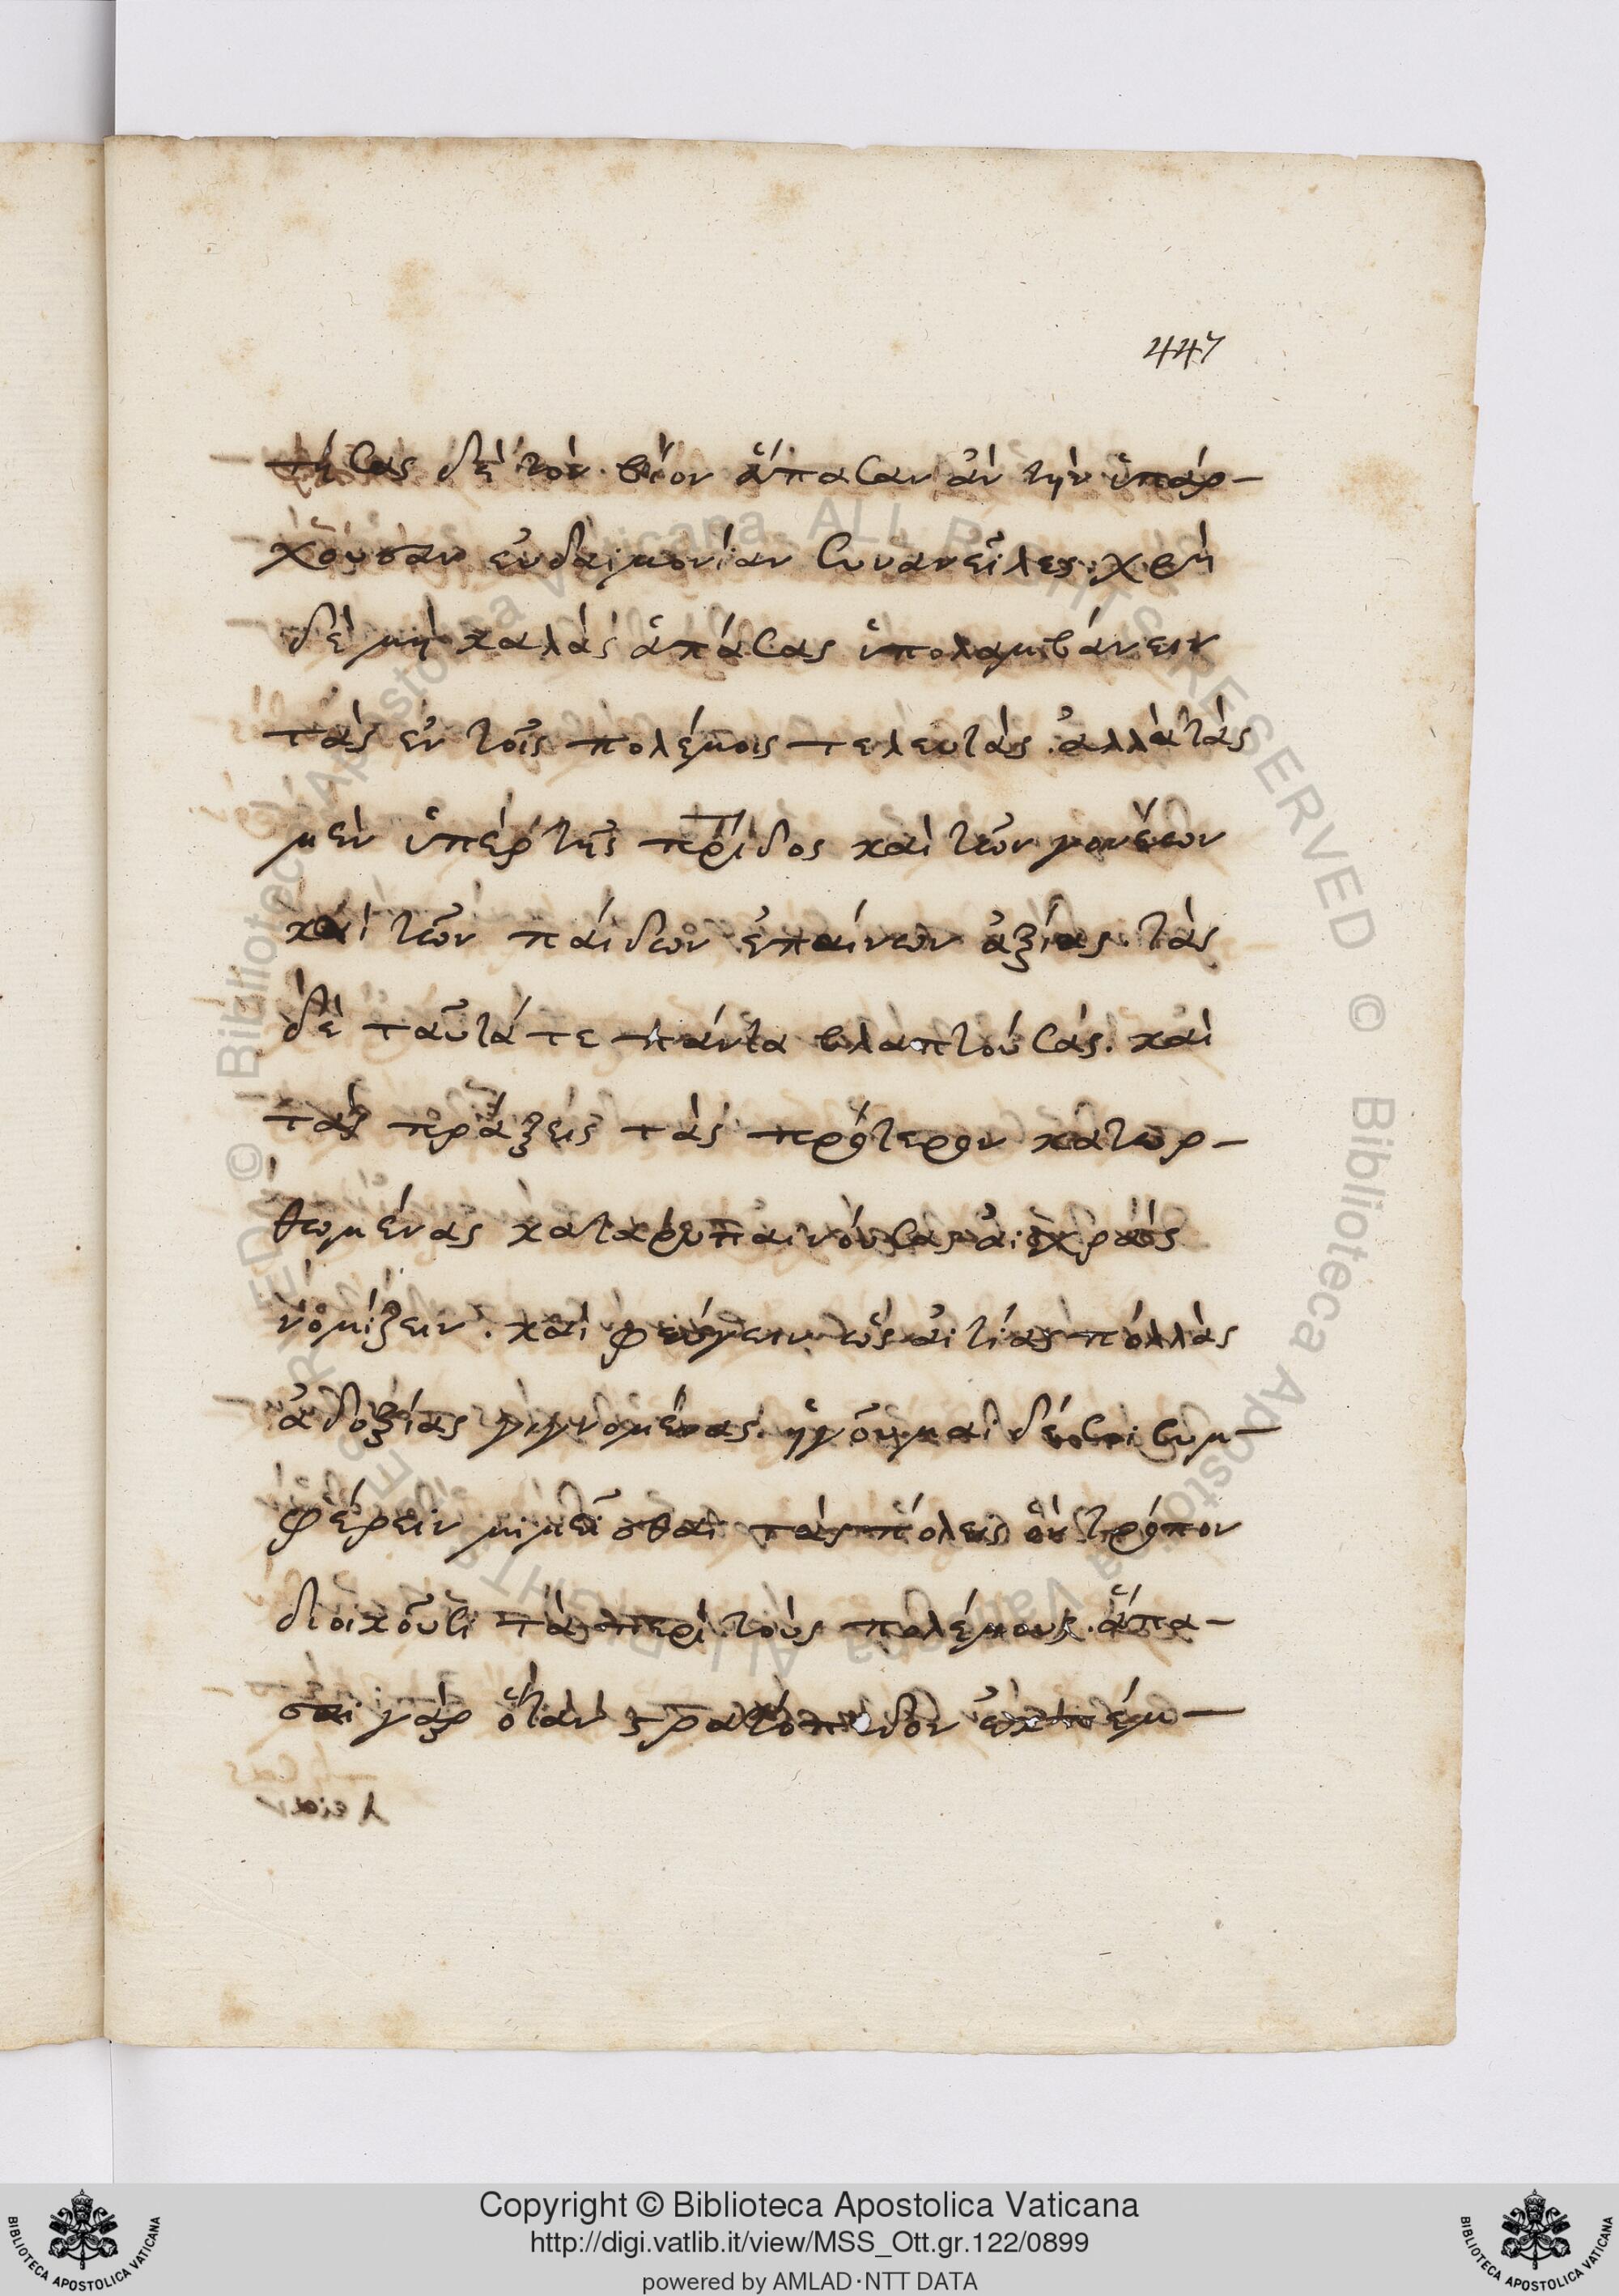 447
τήσας δὲ τὸν βίον ἅπασαν ἂν τὴν ὑπάρ-
χουσαν εὐδαιμονίαν συνανεῖλες. χρὴ
δὲ μὴ καλὰς ἁπάσας ὑπολαμβάνειν
τὰς ἐν τοῖς πολέμοις τελευτὰς. ἀλλὰ τὰς
μὲν ὑπὲρ τῆς πρίδος καὶ τῶν γονέων
καὶ τῶν παίδων ἐπαίνων ἀξίας. τὰς
δὲ ταῦτά τε πάντα βλαπτούσας. καὶ
τὰς πράξεις τὰς πρότερον κατωρ-
θωμένας καταρυπαινούσας αἰσχρὰς
νομίζειν. καὶ φεύγειν ὡς αἰτίας πολλὰς
ἀδοξίας γιγνομένας. ἡγοῦμαι δέ σοι συμ-
φέρειν μιμεῖσθαι τὰς πόλεις ὃν τρόπον
διοικοῦσι τὰ περὶ τοὺς πολέμους. ἅπα-
σαι γὰρ ὅταν στρατόπεδον ἐκπέμ-
Copyright © Biblioteca Apostolica Vaticana
http://digi.vatlib.it/view/MSS_Ott.gr.122/0899
powered by AMLAD·NTT DATA
BIBLIOTECA APOSTOLICA VATICANA
BIBLIOTECA APOSTOLICA VATICANA
© Biblioteca Apostolica Vaticana ALL RIGHTS RESERVED © Biblioteca Apostolica Vaticana ALL RIGHTS RESERVED